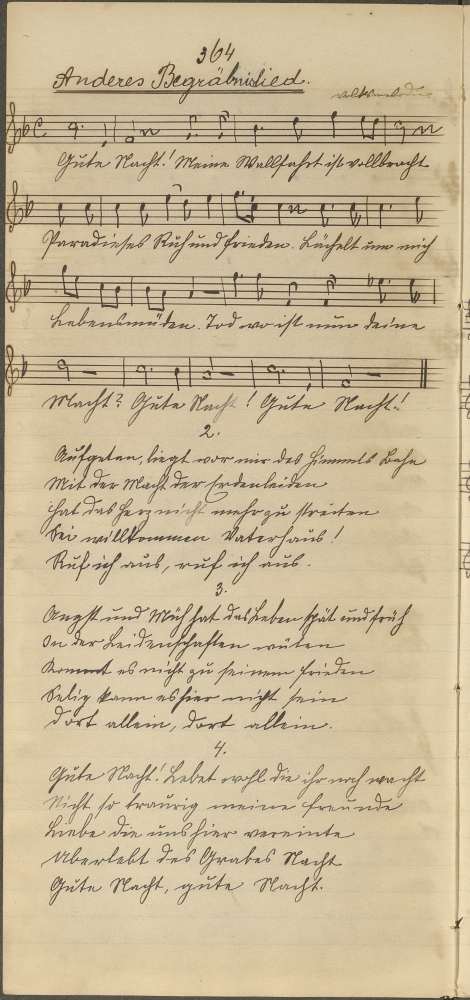 364
Anderes Begräbnislied.
Gute Nacht! Meine Wallfahrt ist vollbracht
Paradieses Ruh und Frieden. Lächelt um mich
Lebensmüden. Tod wo ist nun deine
Macht? Gute Nacht! Gute Nacht!
2.
Aufgetan, liegt vor mir des Himmels Bahn
Mit der Macht der Erdenleiden
Hat das Herz nicht mehr zu streiten
Sei willkommen Vaterhaus!
Ruf ich aus, ruf ich aus.
3.
Angst und Müh hat das Leben spät und früh
In der Leidenschaften wüten
Kommt es nicht zu seinem Frieden
Selig kann es hier nicht sein
Dort allein, dort allein.
4.
Gute Nacht! Lebet wohl die ihr noch wacht
Nicht so traurig meine Freunde
Liebe die uns hier vereinte
Überlebt des Grabes Nacht
Gute Nacht, gute Nacht.